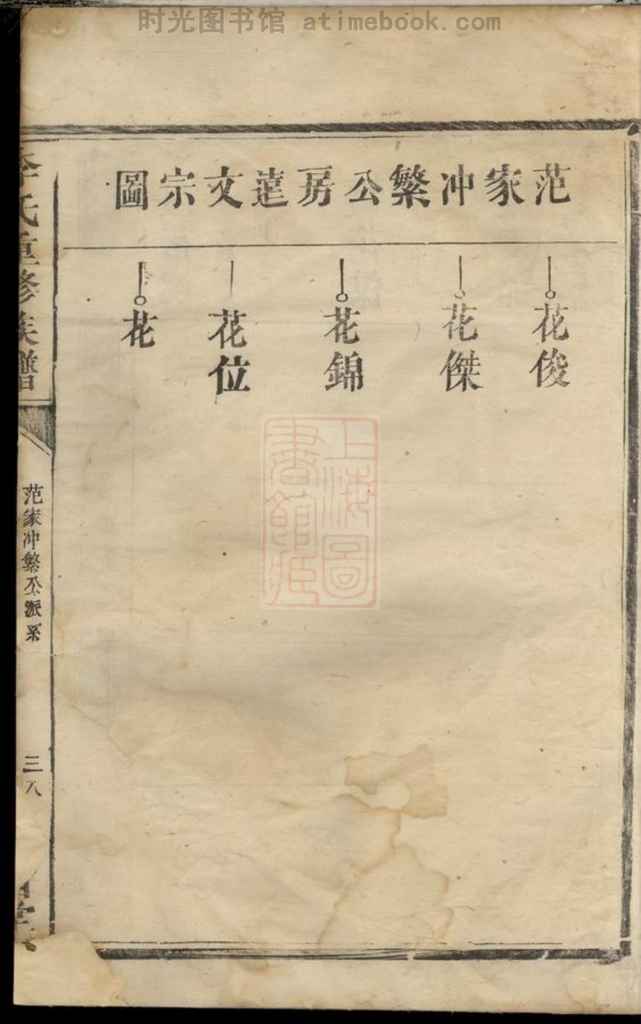 时光图书馆 atimebook.com
范家冲繁公房達文宗圖
花俊
花傑
花錦
花位
花
上海圖書館藏
氏重修族譜
范家冲繁公派系
三八